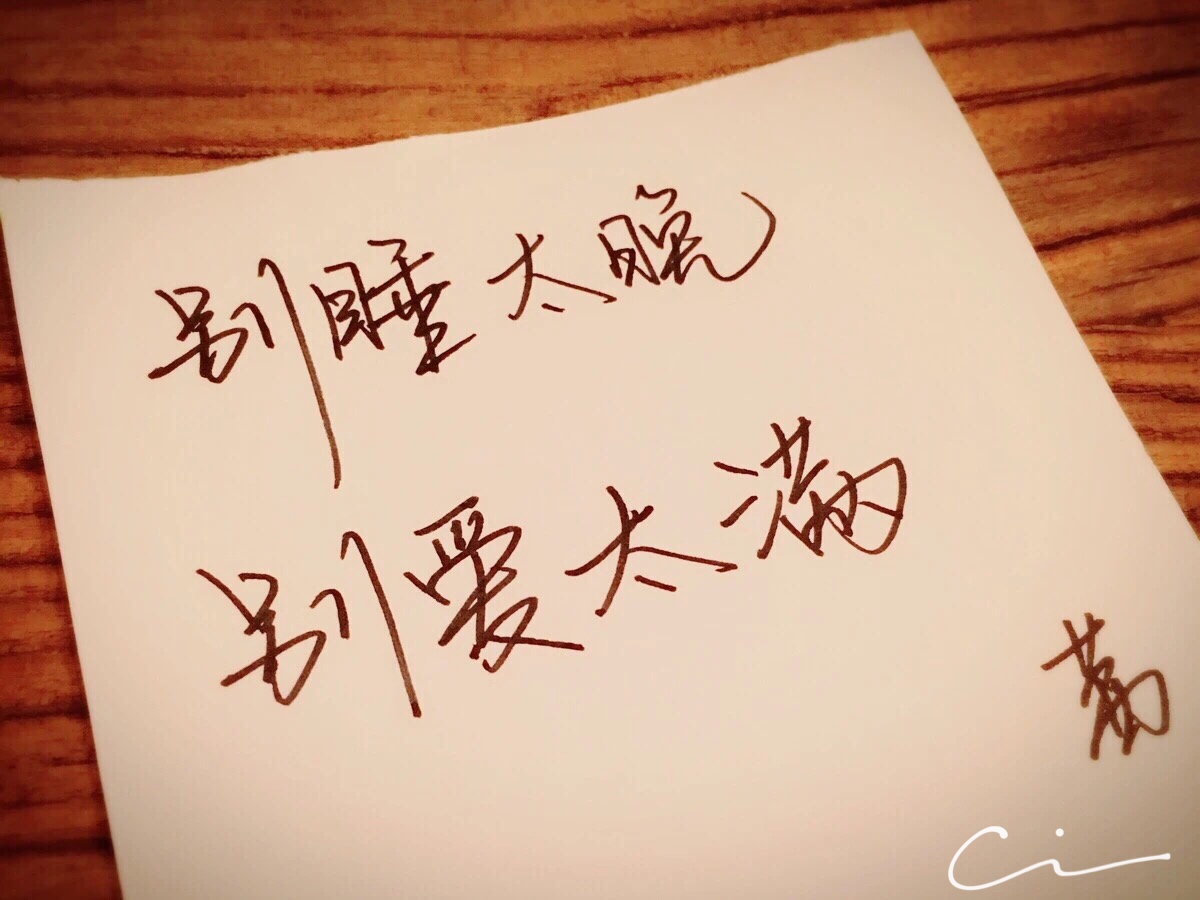 别睡太晚
别爱太满
Ci